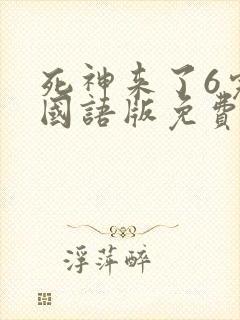 死神来了6
國語版免費
浮萍醉